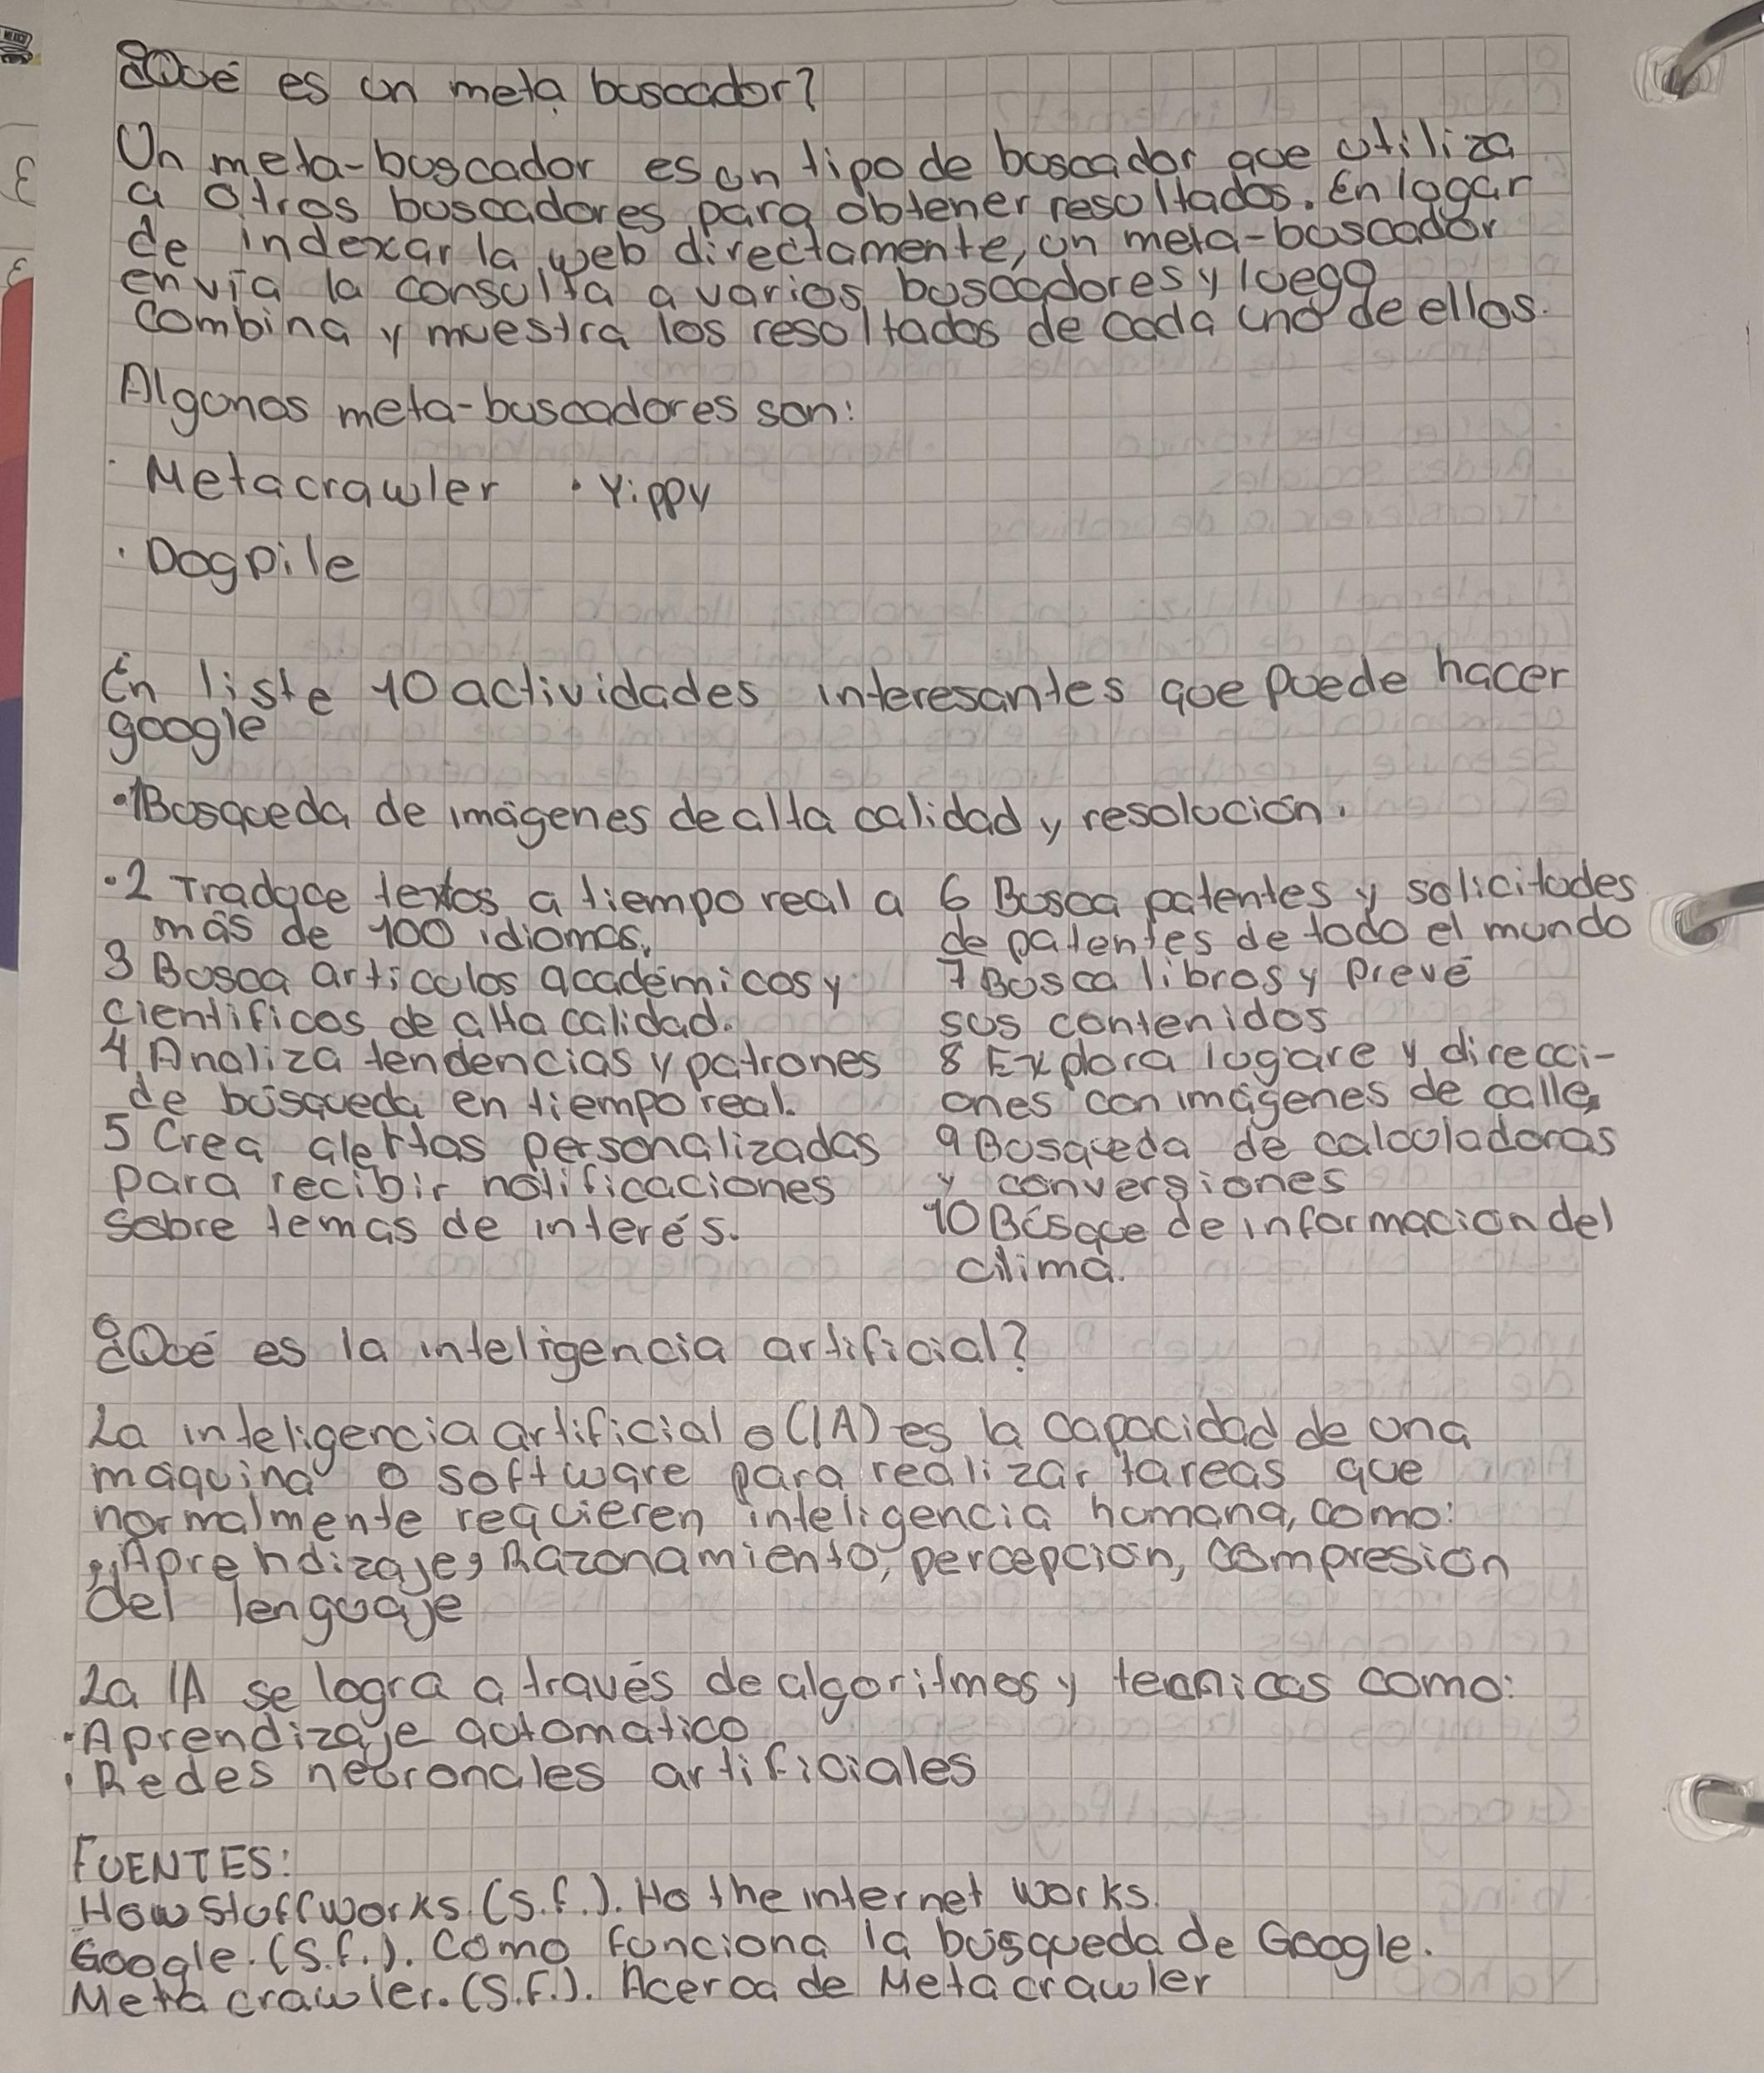 ¿Qué es un meta buscador?
Un meta-buscador es un tipo de buscador que utiliza
a otros buscadores para obtener resultados. En lugar
de indexar la web directamente, un meta-buscador
envía la consulta a varios buscadores y luego
combina y muestra los resultados de cada uno de ellos.
Algunos meta-buscadores son:
· Metacrawler · Yippy
· Dogpile
En liste 10 actividades interesantes que puede hacer
google
·1 Busqueda de imágenes de alta calidad y resolución.
·2 Traduce textos a tiempo real a
más de 100 idiomas.
3 Busca articulos académicos y
cientificos de alta calidad.
4 Analiza tendencias y patrones
de búsqueda en tiempo real.
5 Crea alertas personalizadas
para recibir notificaciones
sobre temas de interés.
6 Busca patentes y solicitudes
de patentes de todo el mundo
7 Busca libros y prevé
sus contenidos
8 Explora lugare y direcci-
ones con imágenes de calle
9 Busqueda de calculadoras
y conversiones
10 Búsque de informacion del
clima.
¿Qué es la inteligencia artificial?
La inteligencia artificial o (IA) es la capacidad de una
máquina o software para realizar tareas que
normalmente requieren inteligencia humana, como:
Aprendizaje, Razonamiento, percepción, compresión
del lenguaje
La IA se logra a través de algoritmos y tecnicas como:
· Aprendizaje automatico
· Redes neuronales artificiales
FUENTES:
HowStuffworks. (s.f.). Ho the internet works.
Google. (s.f.). Como funciona la búsqueda de Google.
Meta crawler. (s.f.). Acerca de Metacrawler